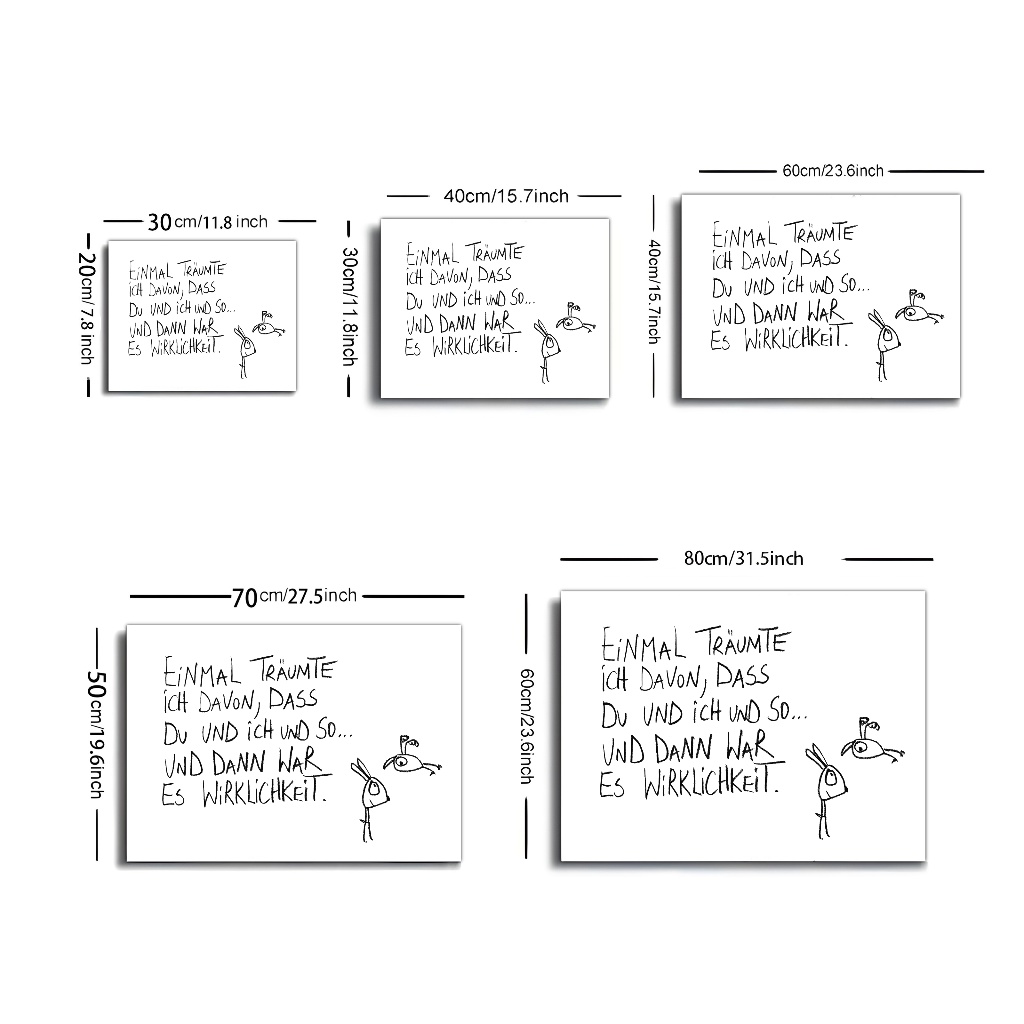 30 cm/11.8 inch
20cm/ 7.8 inch
EiNMAL TRÄUMTE
iCH DAVON, DASS
DU UND iCH UND SO...
UND DANN WAR
ES WiRKLiCHKEiT.
40cm/15.7inch
30cm/11.8inch
EiNMAL TRÄUMTE
iCH DAVON, DASS
DU UND iCH UND SO...
UND DANN WAR
ES WiRKLiCHKEiT.
60cm/23.6inch
40cm/15.7inch
EiNMAL TRÄUMTE
iCH DAVON, DASS
DU UND iCH UND SO...
UND DANN WAR
ES WiRKLiCHKEiT.
70cm/27.5inch
50cm/19.6inch
EiNMAL TRÄUMTE
iCH DAVON, DASS
DU UND iCH UND SO...
UND DANN WAR
ES WiRKLiCHKEiT.
80cm/31.5inch
60cm/23.6inch
EiNMAL TRÄUMTE
iCH DAVON, DASS
DU UND iCH UND SO...
UND DANN WAR
ES WiRKLiCHKEiT.